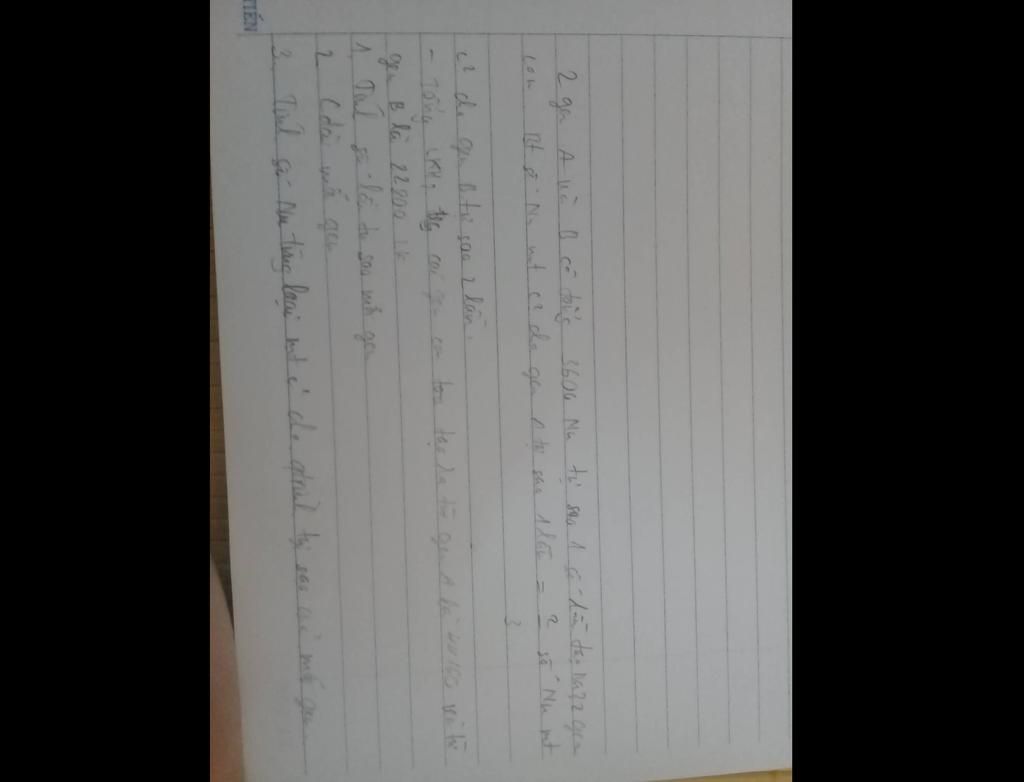 TIẾN
2 gen A và B có tổng 3604 Nu tự sao 1 số lần tạo ra gen
con Bt số Nu mt c² cho gen A tự sao 1 lần = 2/3 số Nu mt
c² cho gen B tự sao 2 lần.
- Tổng LKH₂ các gen con tạo ra từ gen A là và từ
gen B là 22800 LK
1. Tính số lần tự sao mỗi gen
2. Cdài mỗi gen
3. Tính số Nu từng loại mt c² cho qtrình tự sao của mỗi gen